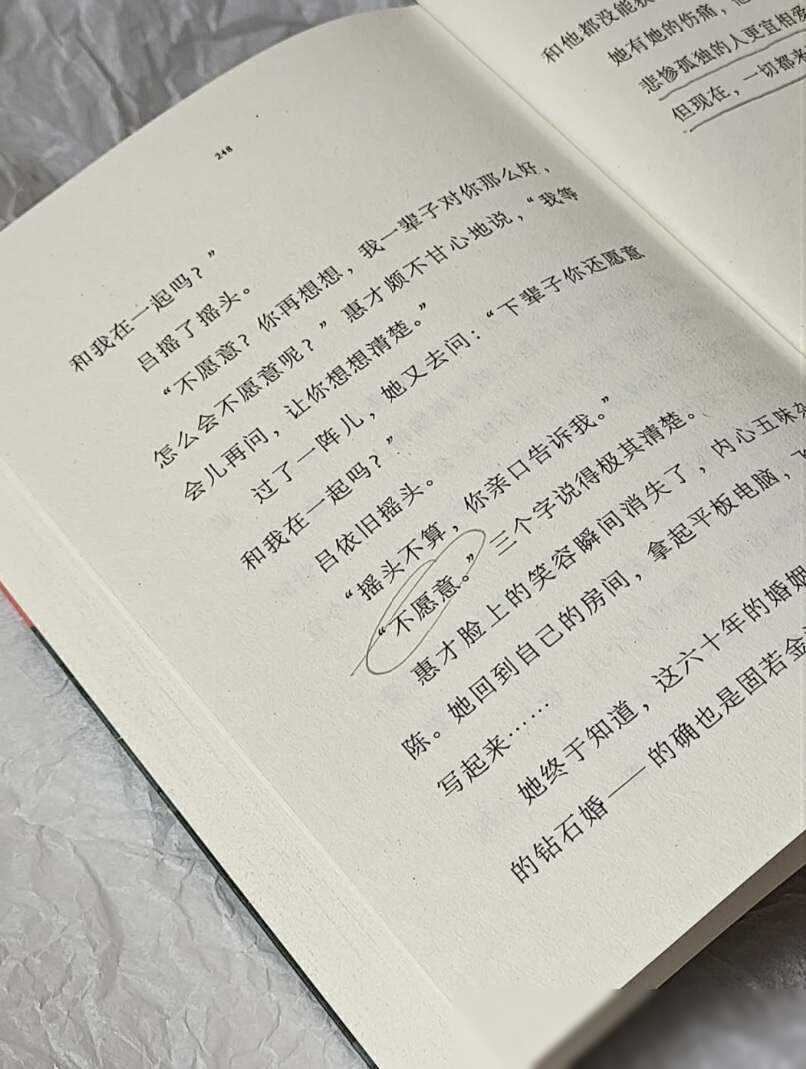 248
和我在一起吗？”
吕摇了摇头。
“不愿意？你再想想，我一辈子对你那么好，
怎么会不愿意呢？”惠才颇不甘心地说，“我等
会儿再问，让你想想清楚。”
过了一阵儿，她又去问：“下辈子你还愿意
和我在一起吗？”
吕依旧摇头。
“摇头不算，你亲口告诉我。”
“不愿意。”三个字说得极其清楚。
惠才脸上的笑容瞬间消失了，内心五味杂
陈。她回到自己的房间，拿起平板电脑，飞
写起来……
她终于知道，这六十年的婚姻
的钻石婚——的确也是固若金
和他都没能
她有她的伤痛，
悲惨孤独的人更宜相爱
但现在，一切都来